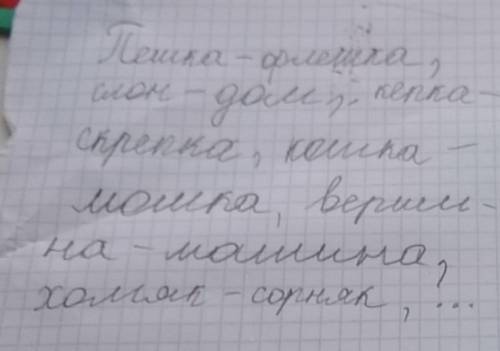 Пешка-флешка,
слон-дом, кепка-
скрепка, кошка-
мошка, верши-
на-машина,
хомяк-сорняк, ...